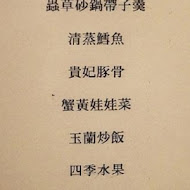 蟲草砂鍋帶子羹
清蒸鱈魚
貴妃豚骨
蟹黃娃娃菜
玉蘭炒飯
四季水果